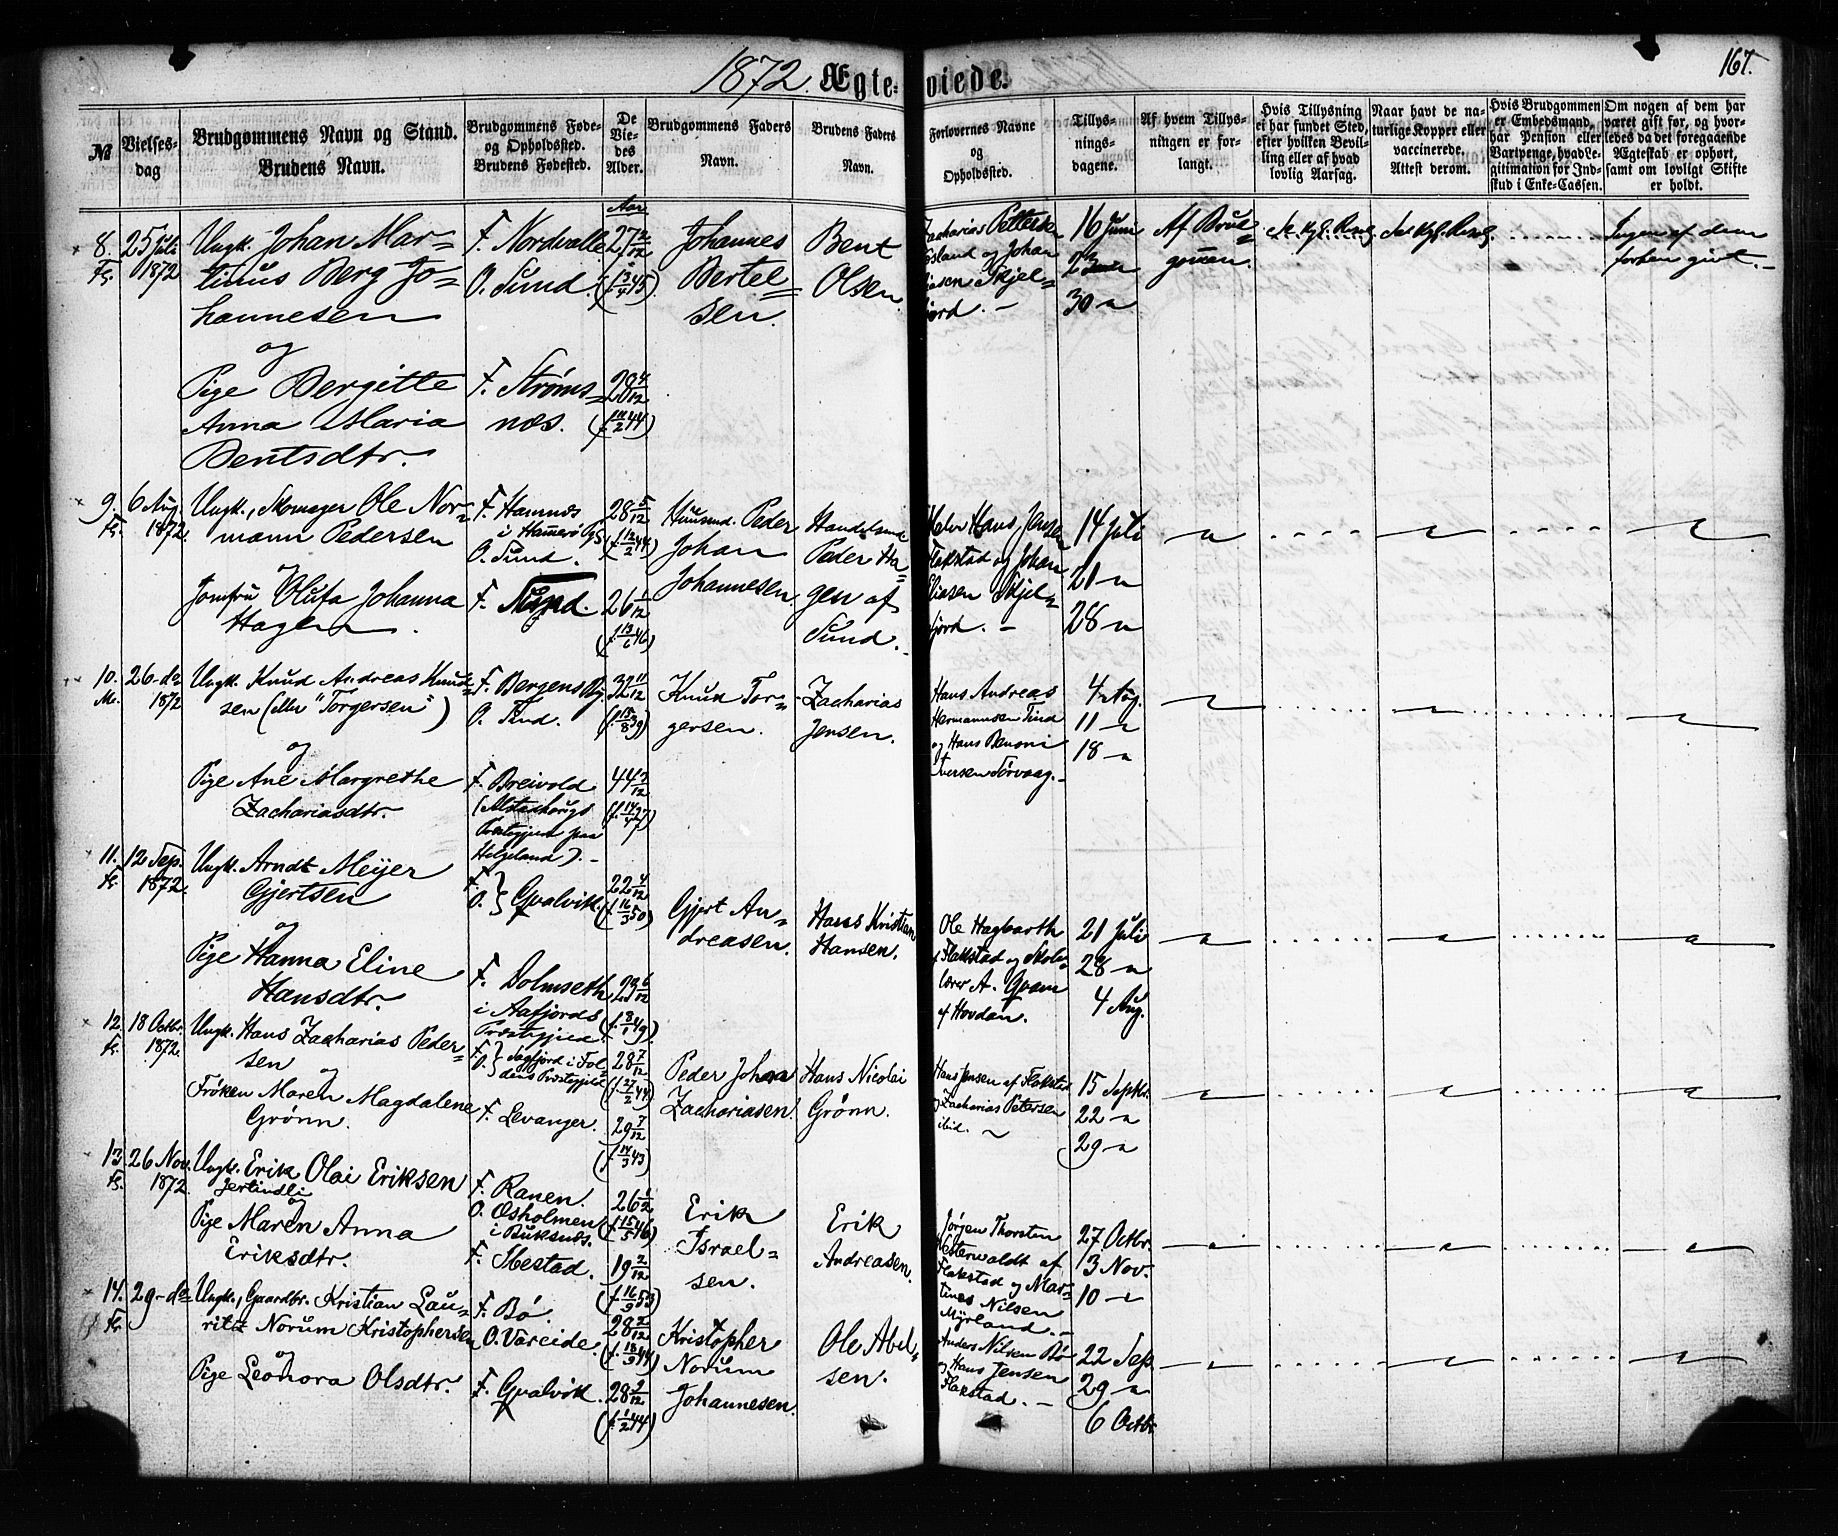 1872. Ægteviede.
167.
№
Vielsesdag
Brudgommens Navn og Stand.
Brudens Navn.
Brudgommens Føde-
og Opholdssted.
Brudens Fødested.
De
Vie-
des
Alder.
Brudgommens Faders
Navn.
Brudens Faders
Navn.
Forlovernes Navne
og
Opholdssted.
Tillys-
nings-
dagene.
Af hvem Tillys-
ningen er for-
langt.
Hvis Tillysning
ei har fundet Sted,
efter hvilken Bevil-
ling eller af hvad
lovlig Aarsag.
Naar havt de na-
turlige Kopper eller
vaccinerede.
Attest derom.
Hvis Brudgommen
er Embedsmand,
har Pension eller
Vartpenge, hvad Le-
gitimation for Ind-
skud i Enke-Cassen.
Om nogen af dem har
været gift før, og hvor-
ledes da det foregaaende
Ægteskab er ophørt,
samt om lovligt Skifte
er holdt.
8. 25 Juli 1872
Ungk. Johan Mar-
tinus Berg Jo-
hannesen
og
Pige Bergitte
Anna Maria
Bentsdtr.
F. Nordvalle
O. Sund.
F. Strøms-
næs.
Aar
27 2/12
28 4/12
Johannes
Bertel-
sen.
Bent
Olsen.
Zacharias Petters
og Johan
Skjel-
fjord. -
16 Juni
23
30 -
Af Brud-
gommen.
Ingen af dem
forhen givt. -
9. 6 Aug. 1872.
Ungk., Skomager Ole Nor-
mann Pedersen
og
Jomfru Olufa Johanna
Hagen.
F. Hamnes
i Hammerø Pgj.
O. Sund.
F. Sund.
28 5/12
(f. 12/2 44)
26 1/12
(f. 13/6 46)
Huusmd. Peder
Johan
Johannesen.
Handelsmd.
Peder Ha-
gen af
Sund.
Hans Jensen
Flakstad og Johan
Eliasen Skjel-
fjord. -
14 Juli
21 -
28 -
10. 26 - do 1872
Ungk. Knud Andreas Knud-
sen (eller "Torgersen")
og
Pige Ane Margrethe
Zachariasdtr.
F. Bergens By.
O. Tind.
F. Breivold
(Alstadhougs
Præstegjeld paa
Helgeland). -
32 11/12
(f. 15/8 39)
44 3/12
(f. 14/4 27)
Knud Tor-
gersen.
Zacharias
Jensen.
Hans Andreas
Hermannsen Tind
og Hans Benoni
Iversen Sørvaag. -
4 Aug.
11 -
18 -
11. 12 Sep. 1872.
Ungk. Arndt Meijer
Gjertsen
og
Pige Hanna Eline
Hansdtr.
F. O. } Qvalvik.
F. Dolmseth
i Aafjords
Præstegjeld.
22 4/12
(f. 16/3 50)
23 6/12
(f. 8/1 49)
Gjert An-
dreasen.
Hans Kristian
Hansen.
Ole Hagbarth
Flakstad og Skole-
lærer A. Qvam
af Hovdan.
21 Juli
28 -
4 Aug.
12. 18 Octbr. 1872.
Ungk. Hans Zacharias Peder-
sen
og
Frøken Maren Magdalene
Grønn.
F. O. } Sagfjord i Fol-
dens Præstegjeld
F. Levanger.
28 7/12
(f. 27/2 44)
29 7/12
(f. 14/3 43)
Peder Johan
Zachariasen.
Hans Nicolai
Grönn.
Hans Jensen af Flakstad
og Zacharias Petersen
ibid.
15 Septbr.
22 -
29 -
13. 26 Nov. 1872.
Ungk. Erik Olai Eriksen
Jerlindli
og
Pige Maren Anna
Eriksdtr.
F. Ranen.
O. Osholmen
i Buksnæs.
F. Ibestad.
26 1/2
(f. 15/5 46)
19 2/12
(f. 16/9 53)
Erik
Israel-
sen.
Erik
Andreasen.
Jørgen Thorsten
Westerwaldt af
Flakstad og Mar-
tines Nilsen
Myrland. -
27 Octbr.
3 Nov.
10 -
14. 29 - do
Ungk., Gaardbr. Kristian Lau-
ritz Norum Kristophersen
og
Pige Leonora Olsdtr.
F. Bø.
O. Vareide.
F. Qvalvik.
28 2/12
(f. 18/9 44)
28 9/12
(f. 1/2 44)
Kristopher
Norum
Johannesen.
Ole Abel-
sen.
Anders Nilsen Bø
og Hans Jensen
Flakstad. -
22 Sep.
29 -
6 Octbr.